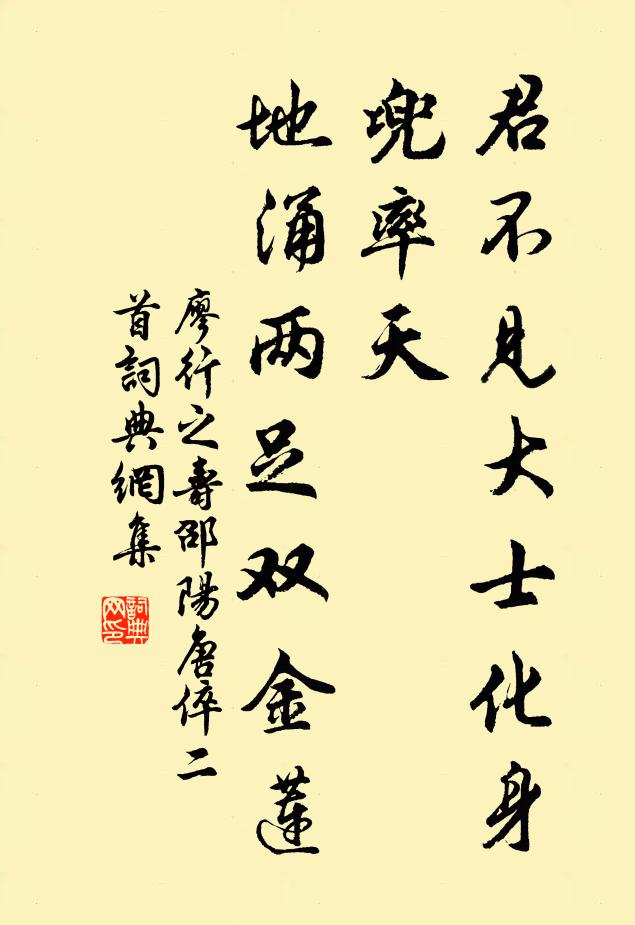 君不见大士化身
兜率天
地涌两足双金莲
廖行之壽邵陽唐倅二
首詞典網集
詞典网印